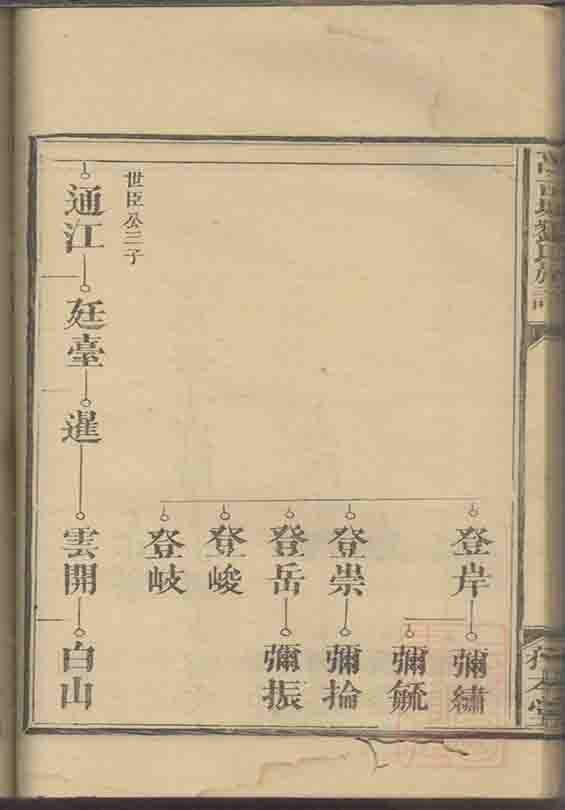 氏族
登岸
彌繡
彌毓
登崇
彌掄
登岳
彌振
登峻
登岐
世臣公三子
通江
廷臺
暹
雲開
白山